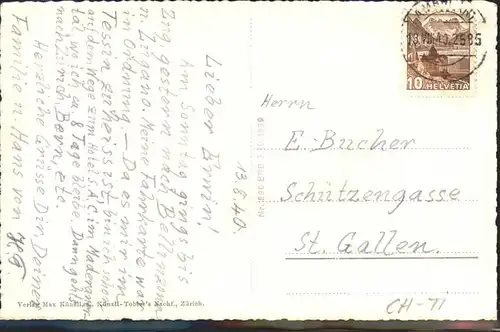 Lieber Erwin!
Am Sonntag ging's bis
Zug, gestern nach Bellinzona
n. Lugano. Meine Fahrkarte war
in Ordnung. – Da es mir im
Tessin zu heiss ist bin ich schon
auf dem Wege zum Hotel A.C. im Maderaner-
tal wo ich ca 8 Tage bleibe. Dann geht's
nach Zürich, Bern, etc.
Herzliche Grüsse Dir Deiner
Familie n. Hans von
13.8.40.
13.VIII.40.
HELVETIA
10
Herrn
E. Bucher
Schützengasse
St. Gallen.
CH-71
Verlag Max Künzli, Künzli-Tobler's Nachf., Zürich.